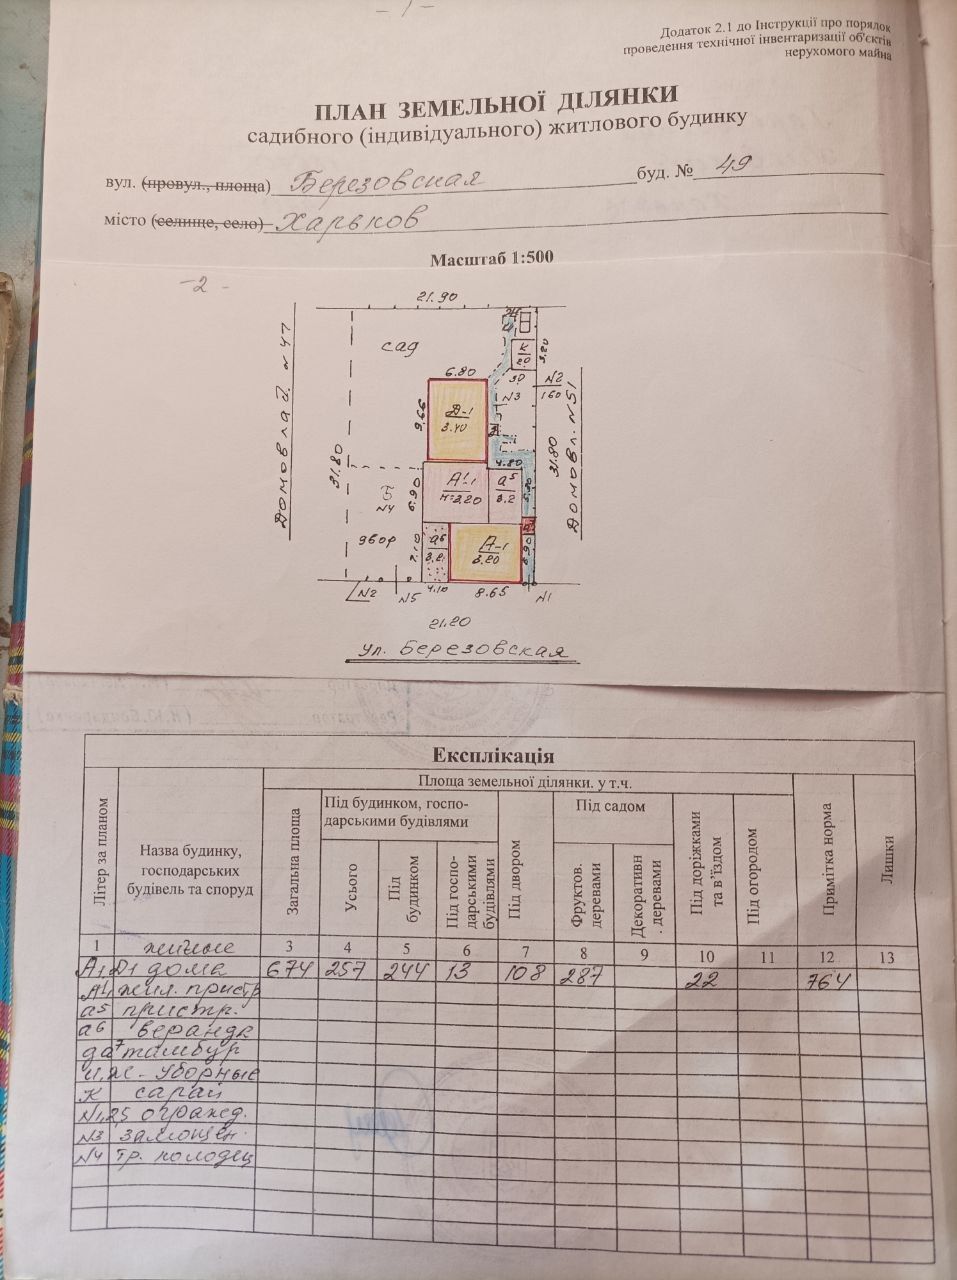 - 1 -
Додаток 2.1 до Інструкції про порядок
проведення технічної інвентаризації об'єктів
нерухомого майна
ПЛАН ЗЕМЕЛЬНОЇ ДІЛЯНКИ
садибного (індивідуального) житлового будинку
вул. (провул., площа) Березовская буд. № 49
місто (селище, село) Харьков
Масштаб 1:500
- 2 -
21.90
Домовлад. № 47
сад
К
2.0
3.20
6.80
3.0
N2
1.60
N3
9.66
Д-1
3.40
31.80
31.80
Домовл. № 51
4.80
А¹-1
н=3.20
а⁵
3.2
6.90
Б
N4
двор
а⁶
А-1
3.20
N2
N5
4.10
8.65
N1
21.20
ул. Березовская
Експлікація
Літер за планом
Назва будинку,
господарських
будівель та споруд
Площа земельної ділянки. у т.ч.
Загальна площа
Під будинком, госпо-
дарськими будівлями
Усього
Під
будинком
Під госпо-
дарськими
будівлями
Під двором
Під садом
Фруктов.
деревами
Декоративн
. деревами
Під доріжками
та в'їздом
Під огородом
Примітка норма
Лишки
1 жилые 3 4 5 6 7 8 9 10 11 12 13
А1,Д1 дома 674 257 244 13 108 287 22 764
А¹ жил. пристр
а⁵ пристр.
а⁶ веранда
да⁷ тамбур
и,ж - уборные
К сарай
N1,2,5 огражд.
N3 замощен.
N4 тр. колодец